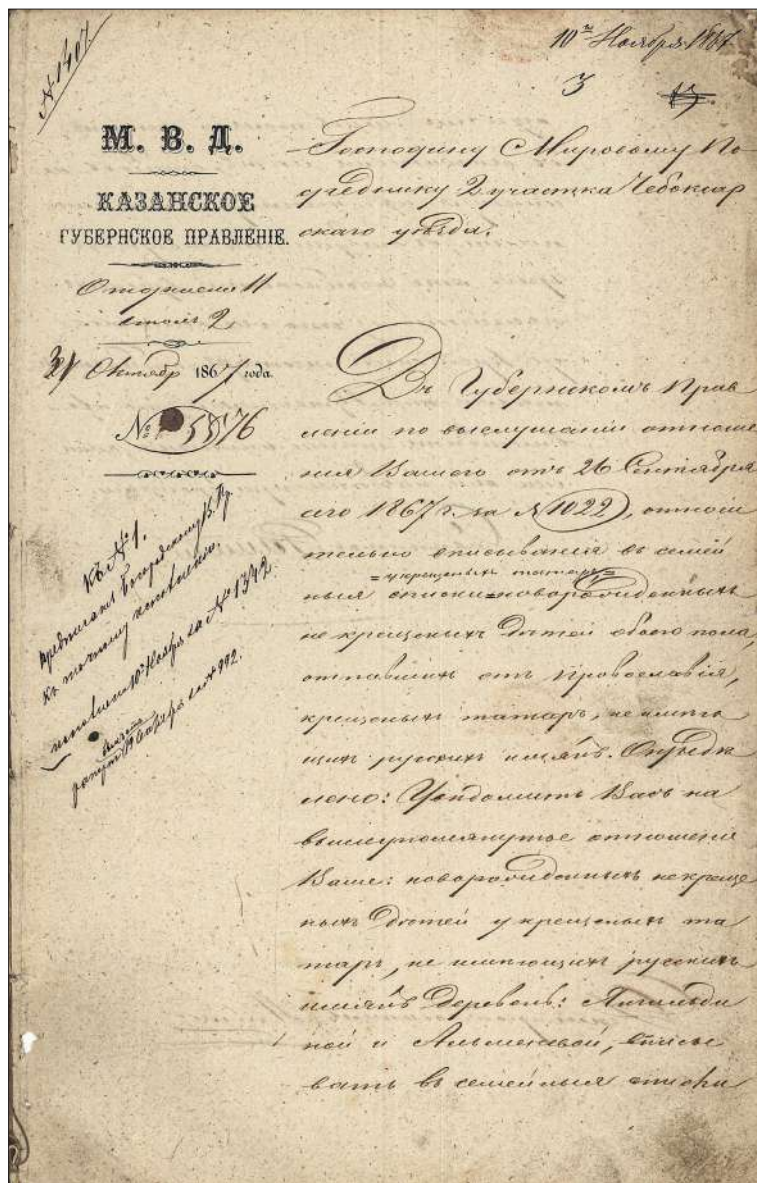 № 1407
10го Ноября 1867
3
13.
М. В. Д.
КАЗАНСКОЕ
ГУБЕРНСКОЕ ПРАВЛЕНІЕ.
Отдѣленіе II
столъ 2
31 Октябр 1867 года.
№ 5576
Къ № 1.
къ точному исполненію.
исполнено 10го Ноября за № 1342.
за № 992.
Господину Мировому По
среднику 2 участка Чебоксар
скаго уѣзда.
Въ Губернскомъ Прав
леніи по выслушаніи отноше
нія Вашего отъ 26 Сентября
сего 1867 г. за № 1022, относи
тельно вписыванія въ семей
= у крещеныхъ татаръ =
ныя списки = новорожденныхъ
не крещеныхъ дѣтей обоего пола,
отпавшихъ отъ православія,
крещеныхъ татаръ, не имѣю
щихъ русскихъ имянъ. Опредѣ
лено: Увѣдомить Васъ на
вышеупомянутое отношеніе
Ваше: новорожденныхъ не креще
ныхъ дѣтей у крещеныхъ та
таръ, не имѣющихъ русскихъ
имянъ деревень: Янгильди
ной и Альменевой, вписы
вать въ семейныя списки